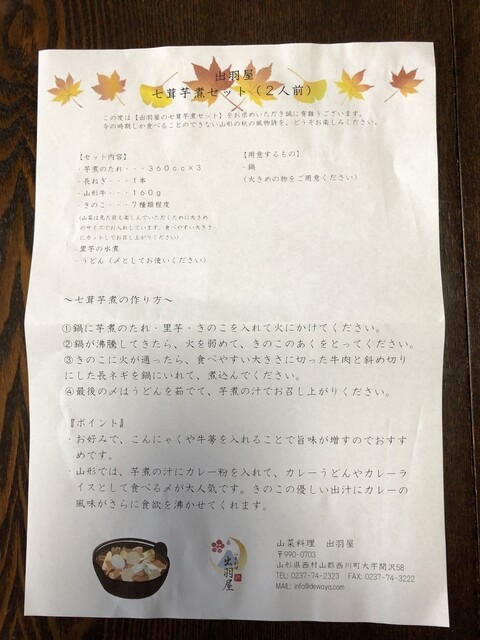 出羽屋
七茸芋煮セット（2人前）
この度は【出羽屋の七茸芋煮セット】をお求めいただき誠に有難うございます。
今の時期しか食べることのできない山形の秋の風物詩を、どうぞお楽しみください。
【セット内容】
・芋煮のたれ・・・３６０cc×３
・長ねぎ・・・１本
・山形牛・・・１６０ｇ
・きのこ・・・７種類程度
(山菜は見た目も楽しんでいただくために大きめ
のサイズでお入れしています。食べやすい大きさ
にカットしてお召し上がりください)
・里芋の水煮
・うどん（〆としてお使いください）
【用意するもの】
・鍋
（大きめの物をご用意ください）
～七茸芋煮の作り方～
①鍋に芋煮のたれ・里芋・きのこを入れて火にかけてください。
②鍋が沸騰してきたら、火を弱めて、きのこのあくをとってください。
③きのこに火が通ったら、食べやすい大きさに切った牛肉と斜め切り
にした長ネギを鍋にいれて、煮込んでください。
④最後の〆はうどんを茹でて、芋煮の汁でお召し上がりください。
『ポイント』
・お好みで、こんにゃくや牛蒡を入れることで旨味が増すのでおすす
めです。
・山形では、芋煮の汁にカレー粉を入れて、カレーうどんやカレーラ
イスとして食べる〆が大人気です。きのこの優しい出汁にカレーの
風味がさらに食欲を沸かせてくれます。
出羽屋
山菜料理　出羽屋
〒990-0703
山形県西村山郡西川町大字間沢58
TEL: 0237-74-2323　FAX: 0237-74-3222
MAIL: info@dewaya.com